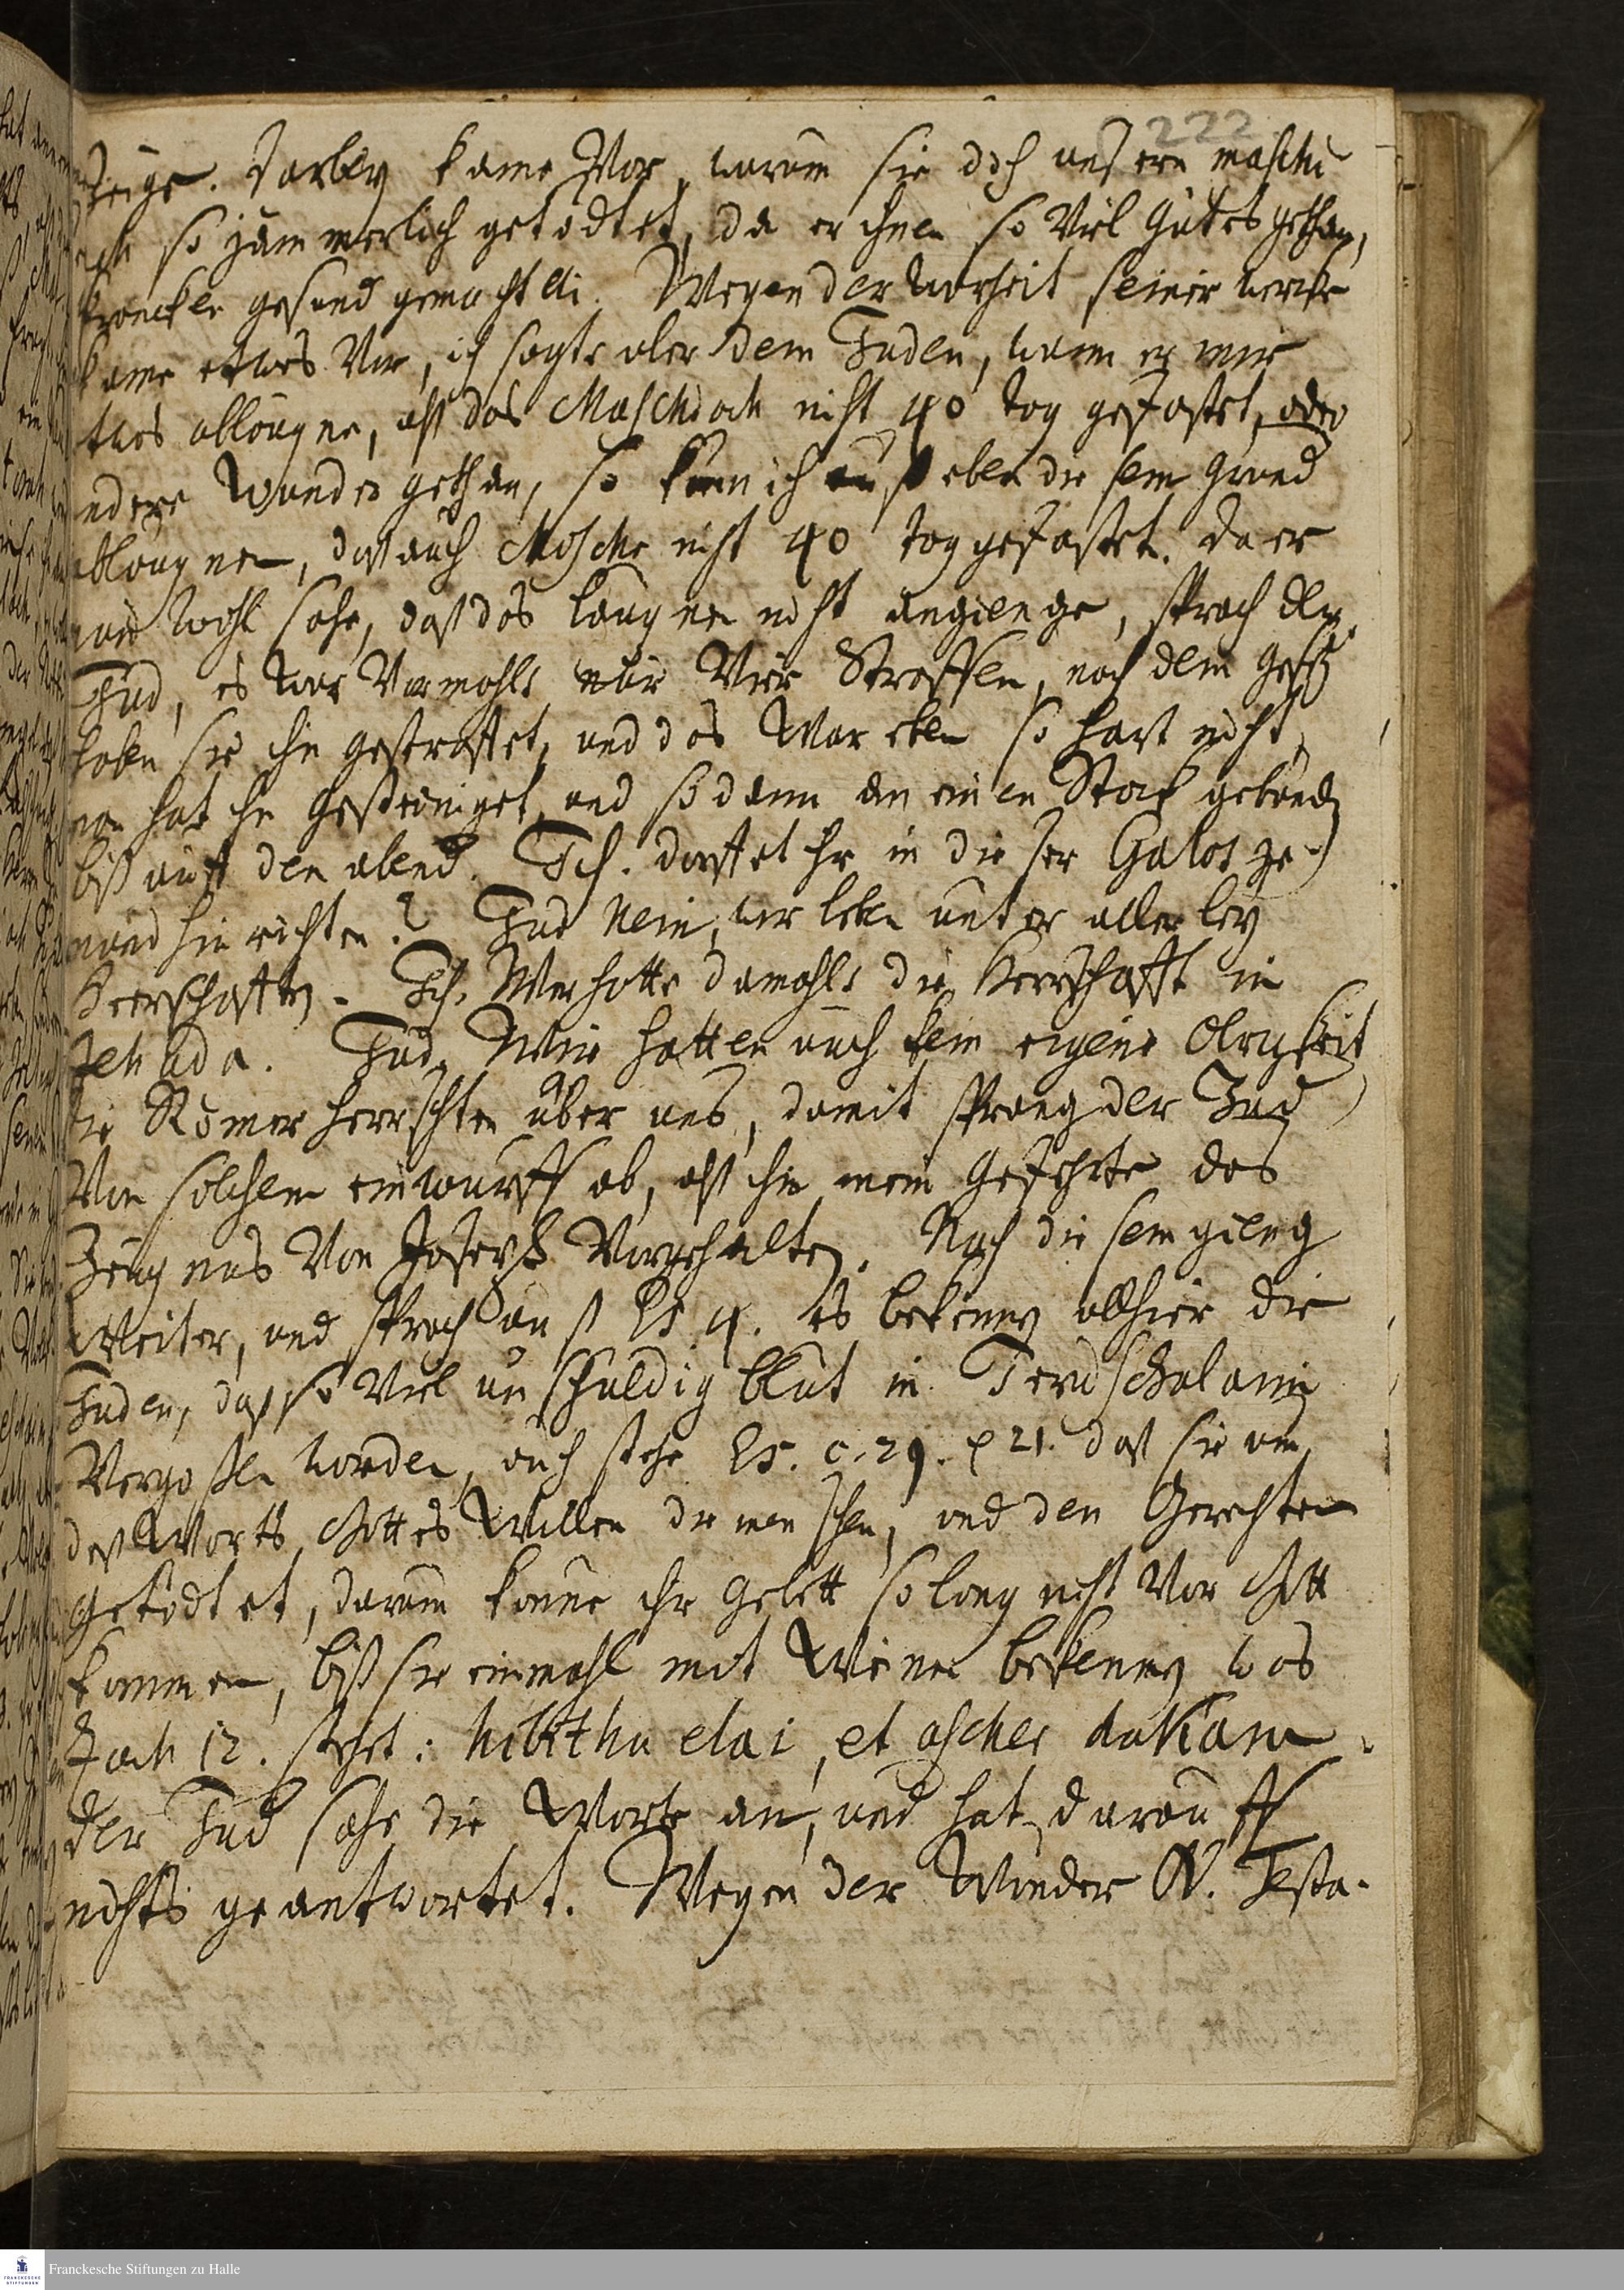 222
Zeüge. Darbey kame Vor, warum sie doch unsern maschi
ach so jämmerlich getödtet, da er ihnen so Viel gutes gethan,
krancke gesund gemacht etc. Wegen der warheit seiner wercke
kame etwas Vor, ich sagte aber dem Juden, wann er mir
etwas abläugne, alß das Maschiach nicht 40 tag gefastet, oder
andere Wunder gethan, so kann ich auß eben diesem grund
abläugnen, daß auch Mosche nicht 40 tag gefastet. Da er
nun wohl sahe, daß das läugnen nicht angienge, sprach der
Jud, es war Vormahls nur Vier Straffen, nach dem gesetz
haben sie ihn gestraffet, und das War eben so hart nicht,
man hat ihn gesteiniget, und so dann an einen Stock gebunden
biß auff den abend. Ich. dorffet ihr in dieser Galos je-
mand hinrichten? Jud Nein, wir leben unter allerley
Herrschafften. Ich. Wer hatte damahls die Herrschafft in
Jehuda. Jud. Wir hatten auch kein eigene Obrigkeit,
die Römer herrschten über uns, damit sprang der Jud
Von solchem einwurff ab, alß ihm mein Gefehrte das
Zeugnus Von Joseph Vorgehalten. Nach diesem gieng
Weiter, und sprach auß Es. 4. es bekennen allhier die
Juden, daß so Viel unschuldig blut in Jeruschalaim
Vergoßen worden, auch stehe Es. c. 29. P 21. daß sie um
deß Worts Gottes Willen die menschen, und den Gerechten
getödtet, darum könne ihr Gebett so lang nicht Vor Gott
kommen, biß sie einmahl mit Weinen bekennen was
Zach 12. stehet: hibithu elai, et ascher dakaru.
der Jud sahe die Worte an, und hat darauff
nichts geantwortet. Wegen der Wunder N. Testa-
Franckesche Stiftungen zu Halle